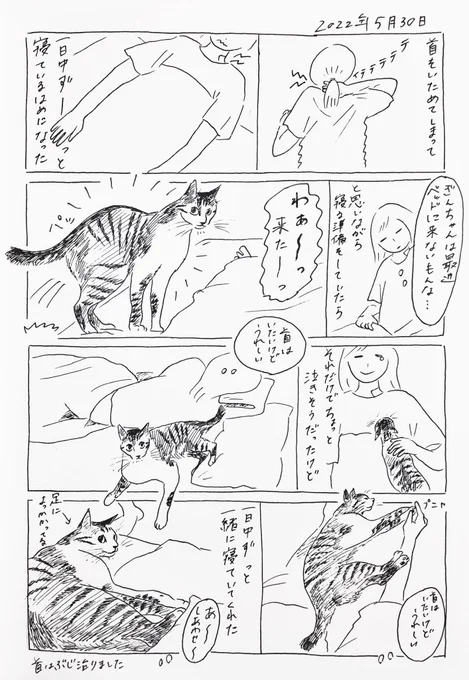 2022年5月30日
首をいためてしまって
イテテテテ
一日中ずーーっと
寝ているはめになった
ぎんちゃんは最近
ベッドに来ないもんな…
と思いながら
寝る準備をしていたら
わぁ〜っ
来た〜っ
パッ
それだけでちょっと
泣きそうだったけど
首は
いたいけど
うれしい
プニャ
首は
いたいけど
うれしい
一日中ずっと
一緒に寝ていてくれた
足に
よっかかってる
あ〜
しあわせ〜
首はぶじ治りました